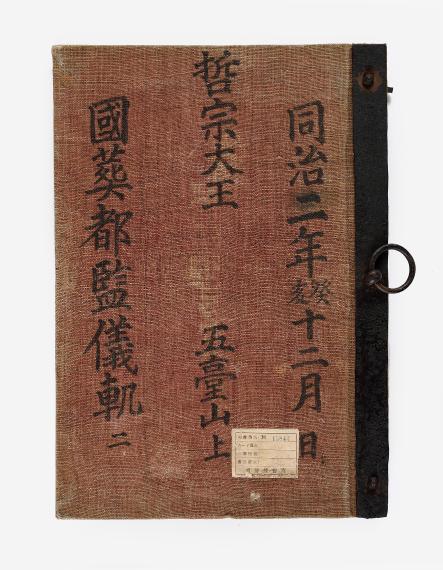 同治二年癸亥十二月 日
哲宗大王
五臺山上
國葬都監儀軌 二